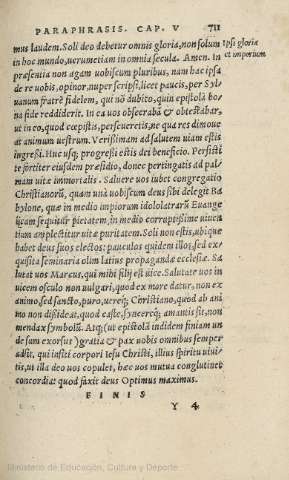 PARAPHRASIS. CAP. V 711
mus laudem. Soli deo debetur omnis gloria, non solum
Ipsi gloria
in hoc mundo, uerumetiam in omnia secula. Amen. In
et imperium
præsentia non agam uobiscum pluribus, nam hac ipsa
de re uobis, opinor, nuper scripsi, licet paucis, per Syl
uanum fratrē fidelem, qui nō dubito, quin epistolā bo
na fide reddiderit. In ea uos obsecrabā & obtestabar,
ut in eo, quod cœpistis, perseueretis, ne qua res dimoue
at animum uestrum. Verissimam ad salutem uiam estis
ingressi. Huc usq; progressi estis dei beneficio. Persisti
te fortiter eiusdem præsidio, donec pertingatis ad pal
mam uitæ immortalis. Saluere uos iubet congregatio
Christianorū, quam unà uobiscum deus sibi delegit Ba
bylone, quæ in medio impiorum idololatrarū Euange
licam sequitur pietatem, in medio corruptissime uiuen
tium amplectitur uitæ puritatem. Soli non estis, ubique
habet deus suos electos: pauculos quidem illos, sed ex
quisita seminaria olim latius propagandæ ecclesiæ. Sa
lutat uos Marcus, qui mihi filij est uice. Salutate uos in
uicem osculo non uulgari, quod ex more datur, non ex
animo, sed sancto, puro, uereq; Christiano, quod ab ani
mo non dissideat, quod castę, synceręq; amantis sit, non
mendax symbolū. Atq; (ut epistolā indidem finiam un
de sum exorsus) gratia & pax uobis omnibus semper
adsit, qui insiti corpori Iesu Christi, illius spiritu uiui-
tis, ut illa deo uos copulet, hæc uos mutua conglutinet
concordia: quod faxit deus Optimus maximus.
FINIS
Y 4
Ministerio de Educación, Cultura y Deporte